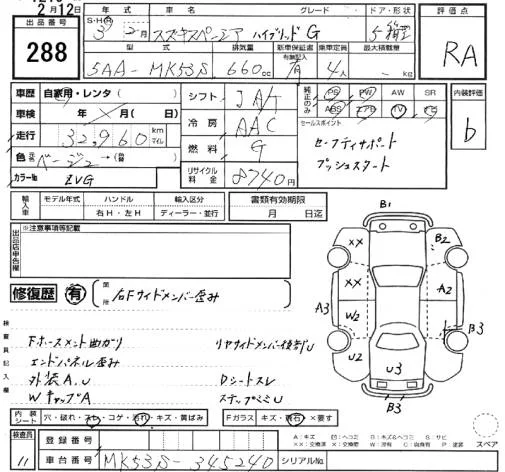 2月12日
出品番号
288
S・H・R 3年2月
車名 スズキスペーシア ハイブリッド G
グレード
ドア・形状 5 箱型
評価点
RA
型式 5AA-MK53S
排気量 660cc
新車保証書 有無記入
乗車定員 4人
最大積載量 - kg
車歴 自家用・レンタ( )
車検 年 × 月( 日)
走行 32,960 km マイル
色 元色 ベージュ →(替 )
カラーNo ZVG
シフト IA/T
冷房 AAC
燃料 G
リサイクル料金 8740円
純正のみ
PS PW AW SR
ABS エアB TV
セールスポイント
セーフティサポート
プッシュスタート
内装評価
b
輸入車
モデル年式 ハンドル 輸入区分
右H・左H ディーラー・並行
書類有効期限
月 日迄
出品店申告欄
※注意事項等記載
修復歴 有
箇所
右Fサイドメンバー歪み
検査員記入欄
Fホースメント曲がり
エンドパネル歪み
外装A.U
WキャップA
リヤサイドメンバー後部U
Dシートスレ
ステップペコU
B1
××
B2
××
A2
A3
W2
B3
U2
U3
B3
スペア
内装シート 穴・破れ・スレ・コゲ・汚れ・キズ・黄ばみ
Fガラス キズ・飛石・×要す
A:キズ U:ヘコミ B:キズ&ヘコミ S:サビ
検査員
11
登録番号
車台番号 MK53S-345240
シリアルNo.